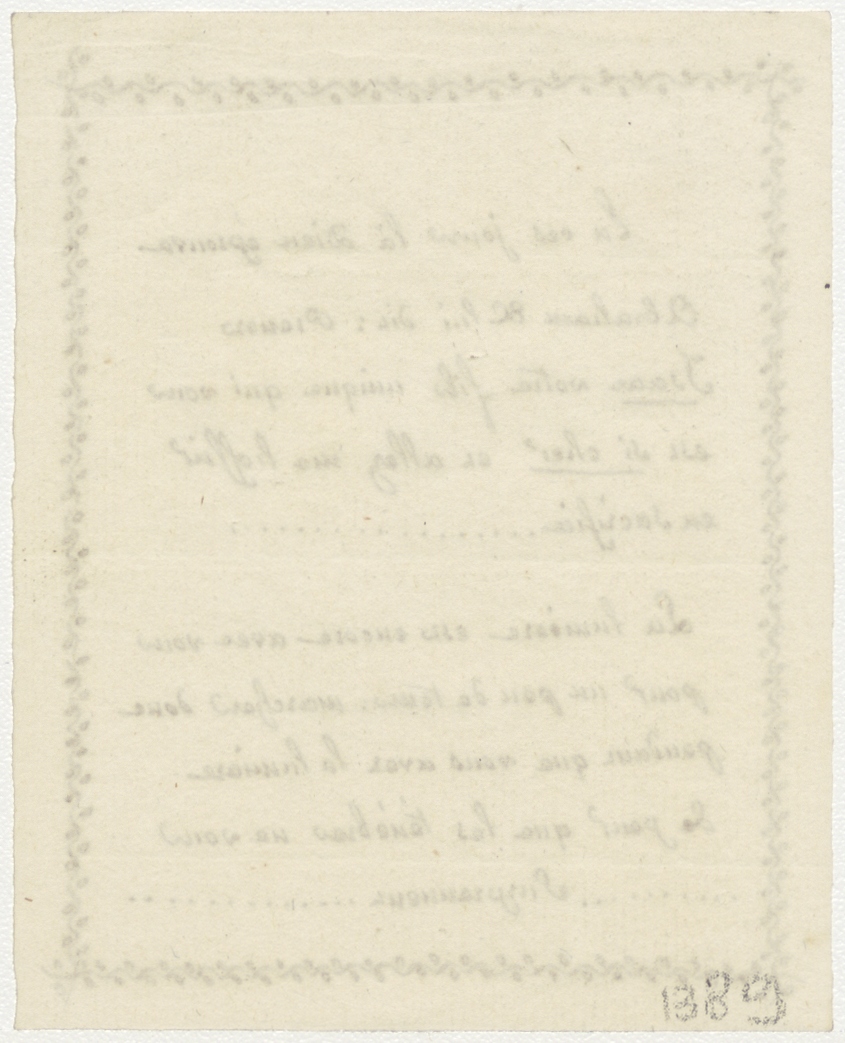 En ces jours là Dieu eprouva
Abraham et lui dit : Prenez
Isaac votre fils unique qui vous
est si cher et allez me l'offrir
en sacrifice................
La lumière est encore avec vous
pour un peu de tems. marchez donc
pendant que vous avez la lumière
de peur que les ténèbres ne vous
.......... Surprennent ...............